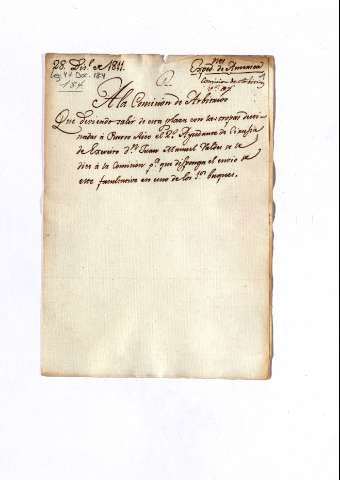 28. Dic.e de 1811.
Leg 4º Doc. 184
184
Exped.tes de America
Comision de Arbitrios
A la Comision de Arbitrios
Que deviendo salir de esta plaza con las tropas desti-
nadas á Puerto Rico el 2º Ayudante de Cirugia
de Exercito D.n Juan Manuel Valdes se le
dice á la Comision p.a que disponga el envio de
este facultativo en uno de los 1.os buques.